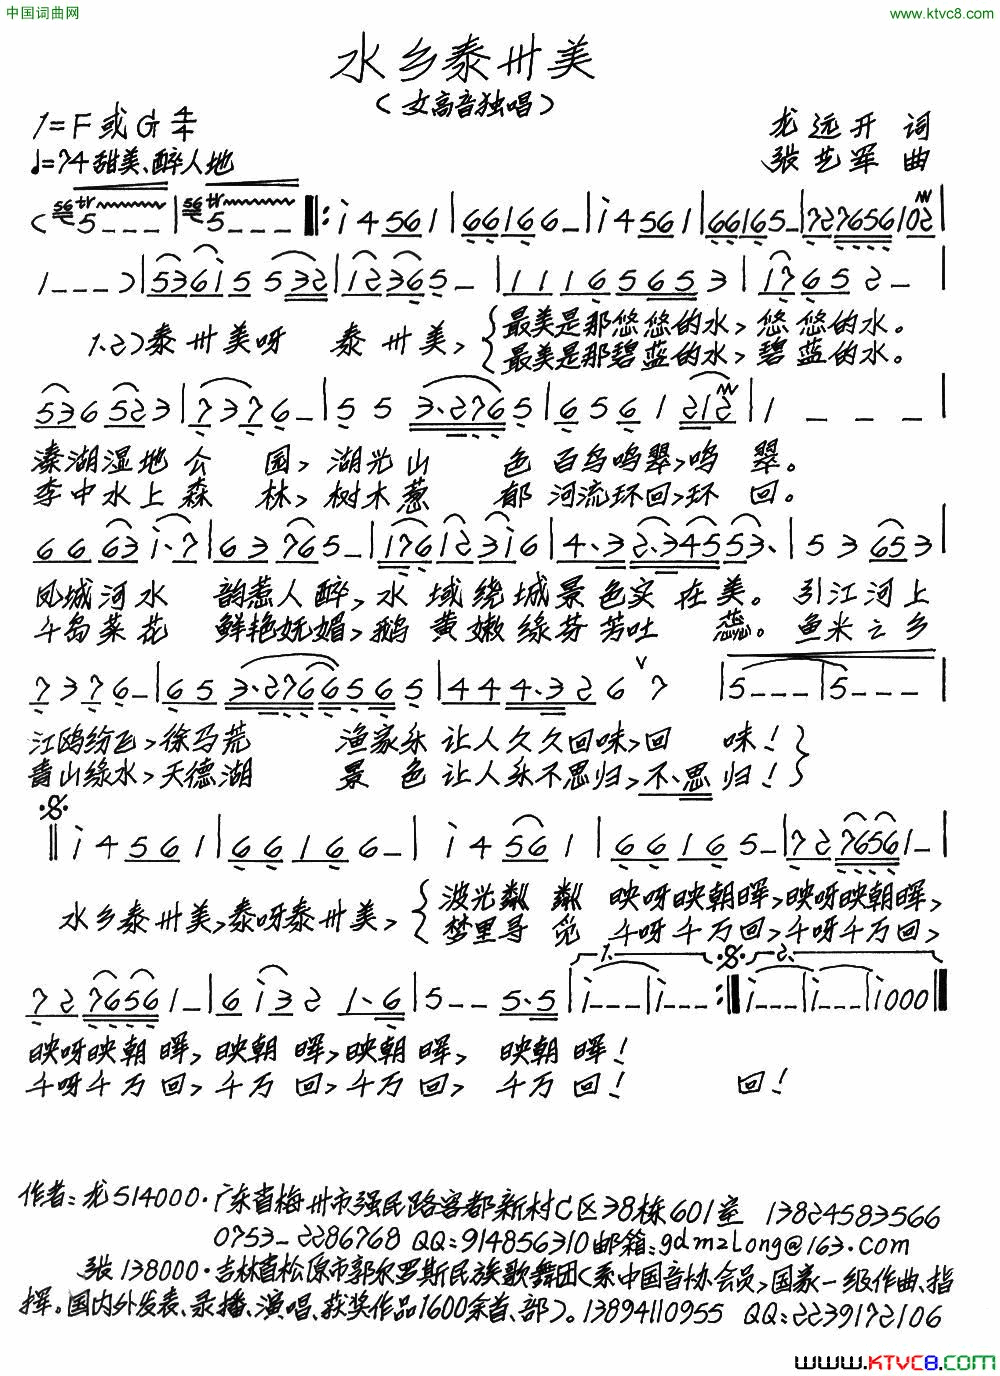 中国词曲网
www.ktvc8.com
水乡泰州美
（女高音独唱）
1=F或G 4/4
龙远开 词
♩=74 甜美、醉人地
张艺军 曲
1.2）泰州美呀 泰州美，
最美是那悠悠的水，悠悠的水。
最美是那碧蓝的水，碧蓝的水。
溱湖湿地公园，湖光山色百鸟鸣翠，鸣翠。
李中水上森林，树木葱郁河流环回，环回。
凤城河水韵惹人醉，水域绕城景色实在美。引江河上
千岛菜花鲜艳妩媚，鹅黄嫩绿芬芳吐蕊。鱼米之乡
江鸥纷飞，徐马荒渔家乐让人久久回味，回味！
青山绿水，天德湖景色让人乐不思归，不、思归！
水乡泰州美，泰呀泰州美，
波光粼粼映呀映朝晖，映呀映朝晖，
梦里寻觅千呀千万回，千呀千万回，
1. 2.
映呀映朝晖，映朝晖，映朝晖，映朝晖！
千呀千万回，千万回，千万回，千万回！ 回！
作者：龙514000·广东省梅州市强民路客都新村C区38栋601室 13824583566
0753-2286768 QQ:914856310邮箱:gdmzlong@163.com
张138000·吉林省松原市郭尔罗斯民族歌舞团（系中国音协会员，国家一级作曲、指
挥。国内外发表、录播、演唱、获奖作品1600余首、部）。13894110955 QQ:2239172106
www.KTVC8.com